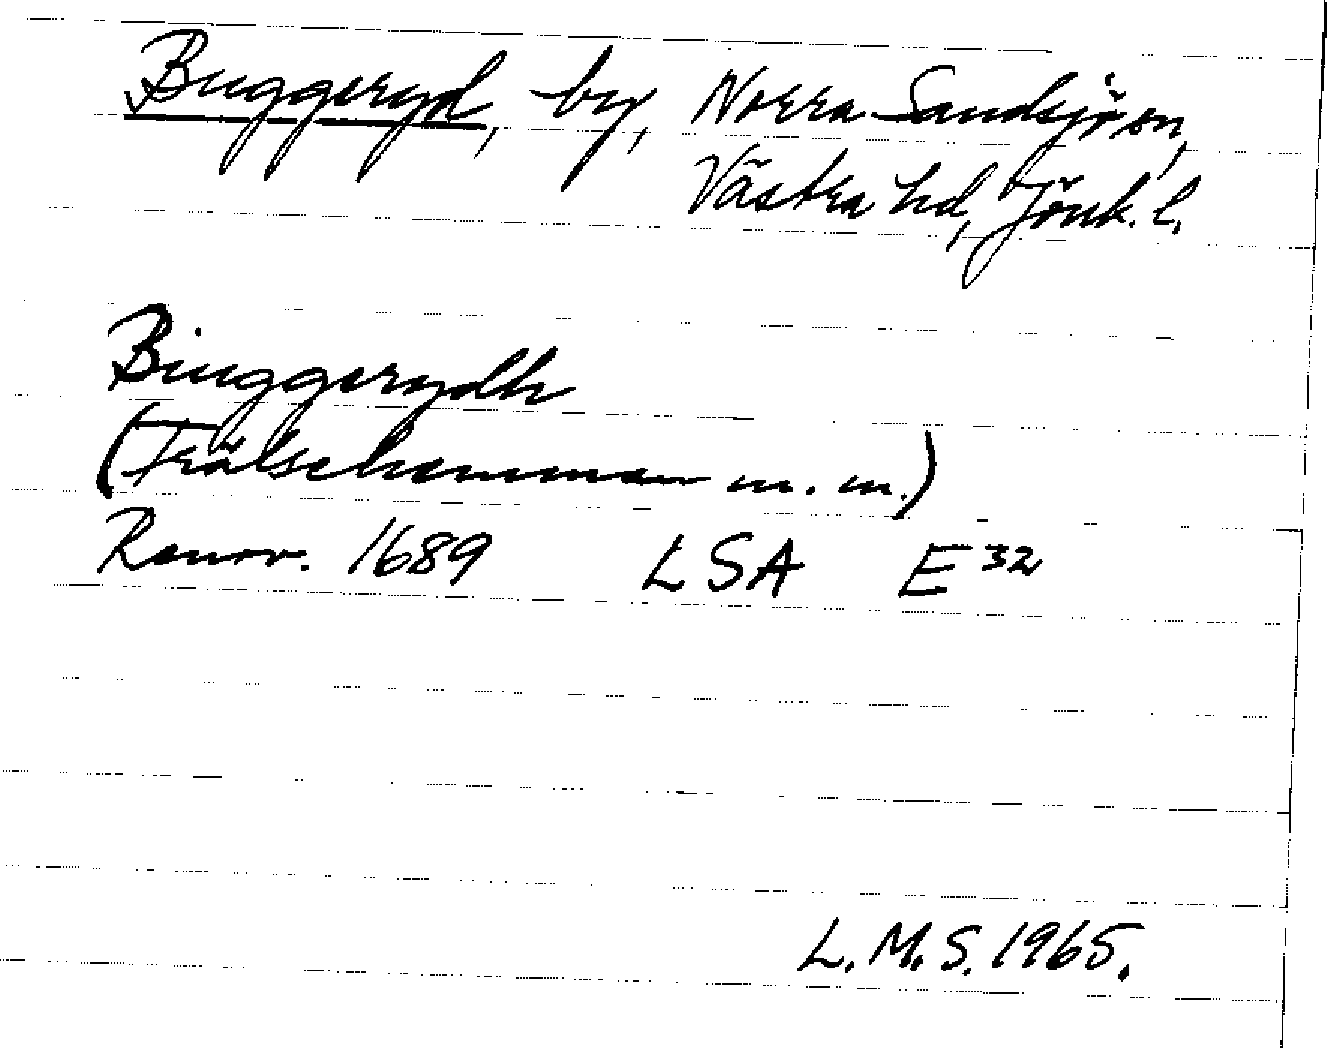 Buggeryd, by, Norra Sandsjö sn,
Västra hd, Jönk. l.
Buggerydh
(Frälsehemman m. m.)
Renov. 1689 LSA E32
L.M.S. 1965.